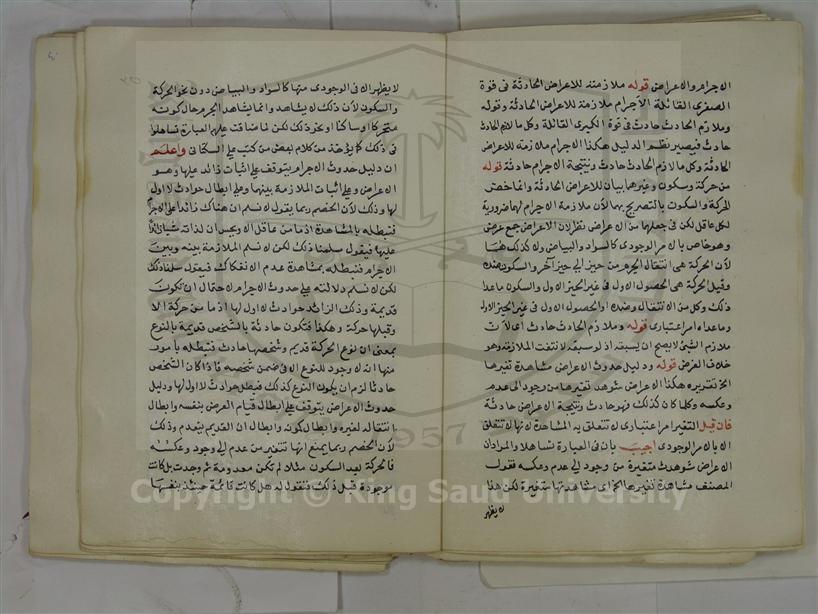 الاجرام والاعراض قوله ملازمته للاعراض الحادثة فى قوة
الصغرى القائلة الاجرام ملازمة للاعراض الحادثة وقوله
وملازم الحادث حادث فى قوة الكبرى القائلة وكل ما لازم الحادث
حادث فيصير نظم الدليل هكذا الاجرام ملازمة للاعراض
الحادثة وكل ما لازم الحادث حادث ونتيجة الاجرام حادثة قوله
من حركة وسكون وغيرهما بيان للاعراض الحادثة وانما خص
الحركة والسكون بالتصريح بهما لأن ملازمة الاجرام لهما ضرورية
لكل عاقل لكن فى جعلهما من الاعراض نظر لان الاعراض جمع عرض
وهو خاص بالامر الوجودى كالسواد والبياض ولا كذلك هما
لأن الحركة هى انتقال الجرم من حيز الى حيز آخر والسكون ضده
وقيل الحركة هى الحصول الاول فى غير الحيز الاول والسكون ما عدا
ذلك وكل من الانتقال وضده او الحصول الاول فى غير الحيز الاول
وما عداه امر اعتبارى قوله وملازم الحادث حادث اى لأن
ملازم الشئ لا يصح ان يسبقه اذ لو سبقه لانتفت الملازمة وهو
خلاف الفرض قوله ودليل حدوث الاعراض مشاهدة تغيرها
الخ تقريره هكذا الاعراض شوهد تغيرها من وجود الى عدم
وعكسه وكل ما كان كذلك فهو حادث ونتيجة الاعراض حادثة
فان قيل التغير امر اعتبارى لا تتعلق به المشاهدة لانها لا تتعلق
الا بالامر الوجودى اجيب بان فى العبارة تساهلا والمراد ان
الاعراض شوهدت متغيرة من وجود الى عدم وعكسه فقول
المصنف مشاهدة تغيرها الخ اى مشاهدتها متغيرة لكن هذا
لا يظهر
لا يظهر الا فى الوجودى منها كالسواد والبياض دون نحو الحركة
والسكون لأن ذلك لا يشاهد وانما يشاهد الجرم حال كونه
متحركا او ساكنا او نحو ذلك لكن لما ضاقت عليهم العبارة تساهلوا
فى ذلك كما يؤخذ من كلام بعض من كتب على السكتانى واعلم
ان دليل حدوث الاجرام يتوقف على اثبات زائد عليها وهو
الاعراض وعلى اثبات الملازمة بينهما وعلى ابطال حوادث لا اول
لها وذلك لأن الخصم ربما يقول لا نسلم ان هناك زائدا على الاجرام
فنبطله بالمشاهدة اذ ما من عاقل الا ويحس ان لذاته شيا زائدا
عليها فيقول سلمنا ذلك لكن لا نسلم الملازمة بينه وبين
الاجرام فنبطله بمشاهدة عدم الانفكاك فيقول سلمنا ذلك
لكن لا نسلم دلالته على حدوث الاجرام لاحتمال ان تكون
قديمة وذلك الزائد حوادث لا اول لها اذ ما من حركة الا
وقبلها حركة وهكذا فتكون حادثة بالشخص قديمة بالنوع
بمعنى ان نوع الحركة قديم وشخصها حادث فنبطله بأمور
منها انه لا وجود للنوع الا فى ضمن شخصه فاذا كان الشخص
حادثا لزم ان يكون النوع كذلك فبطل حوادث لا اول لها ودليل
حدوث الاعراض يتوقف على ابطال قيام العرض بنفسه وابطال
انتقاله لغيره وابطال كونه وابطال ان القديم ينعدم وذلك
لأن الخصم ربما يمنع انها تتغير من عدم الى وجود وعكسه
فالحركة بعد السكون مثلا لم تكن معدومة ثم وجدت بل كانت
موجودة قبل ذلك فنقول له هل كانت قائمة حينئذ بنفسها
1957
Copyright © King Saud University